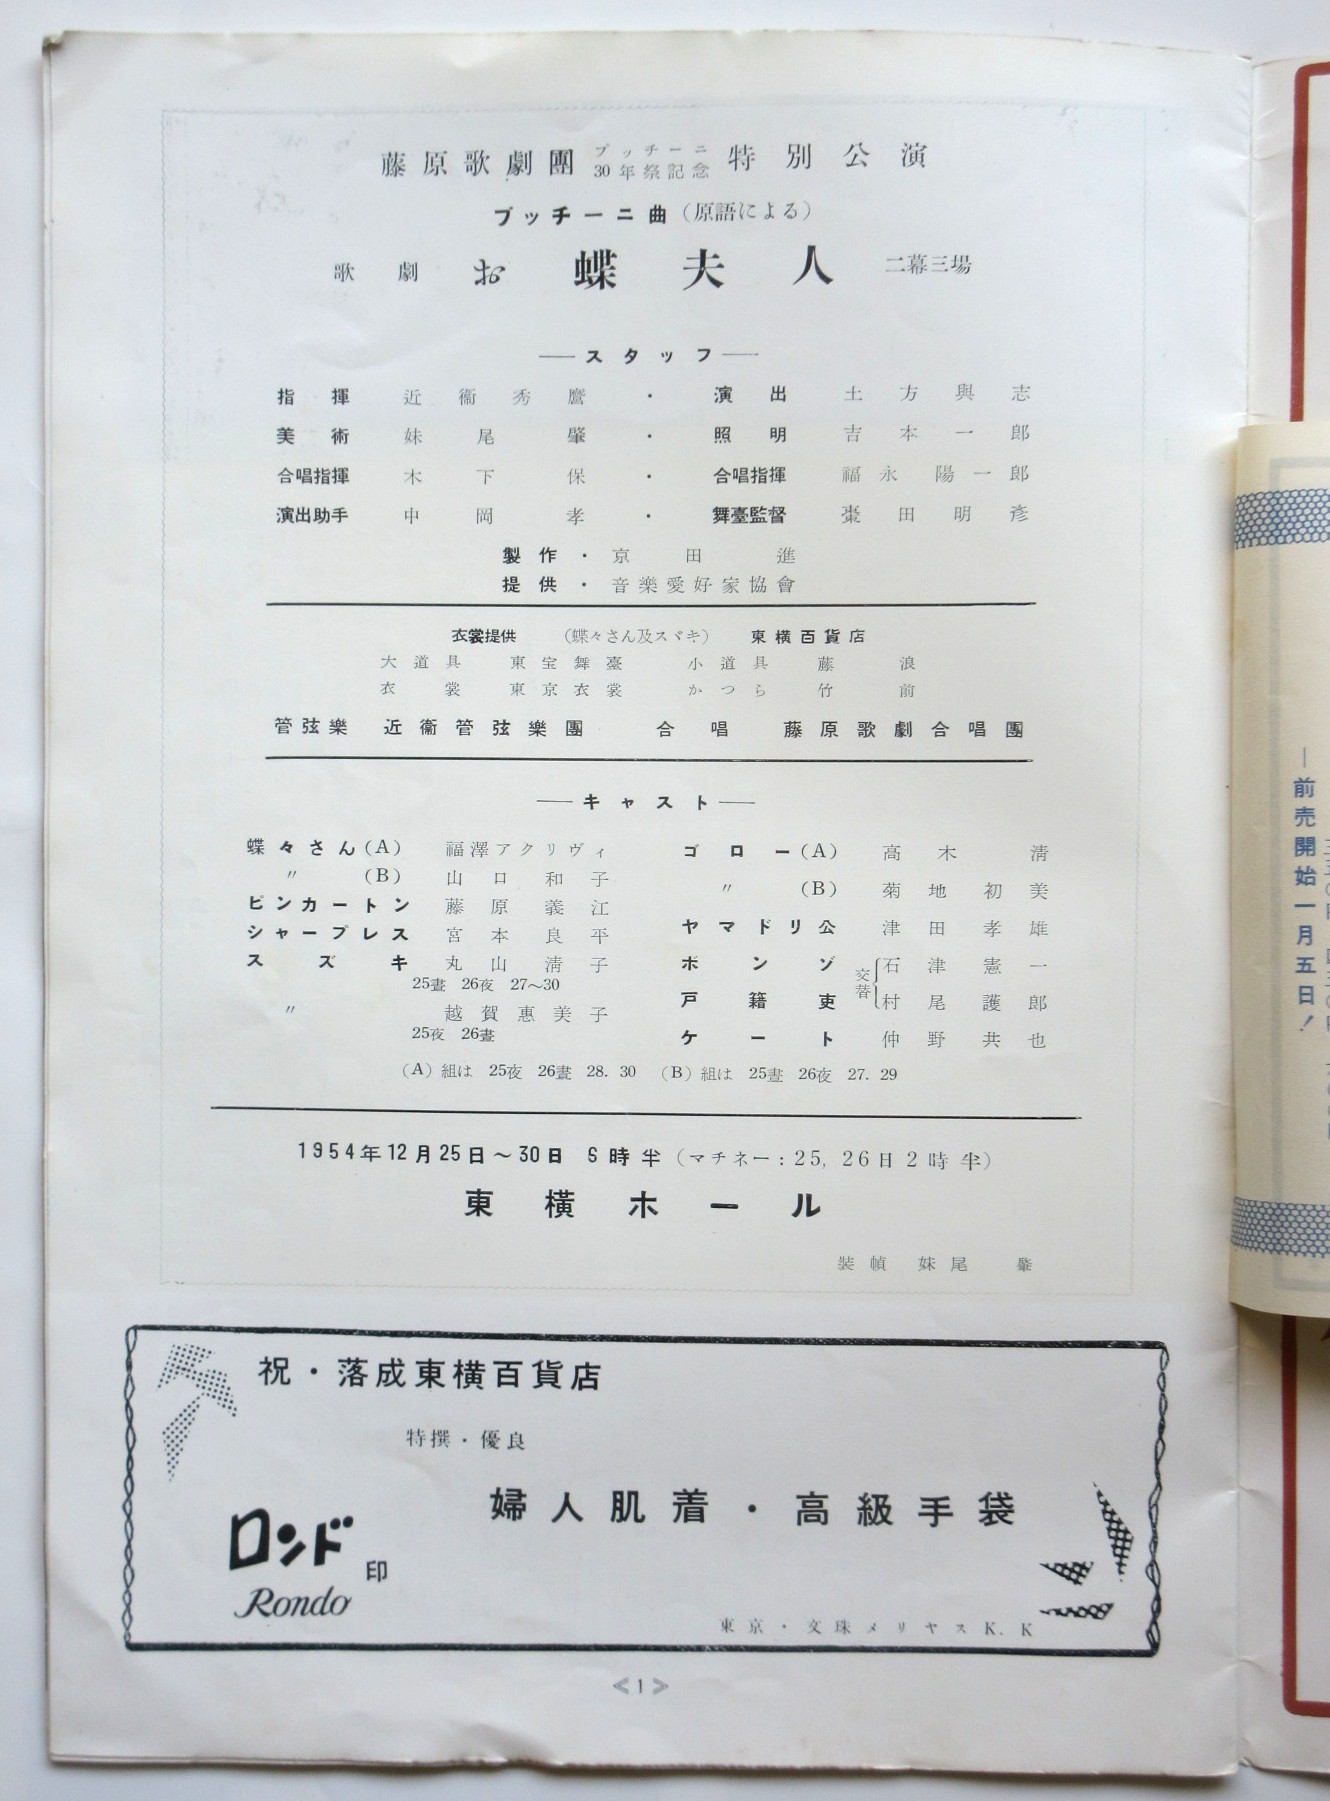 藤原歌劇團 プッチーニ30年祭記念 特別公演
プッチーニ曲（原語による）
歌劇 お蝶夫人 二幕三場
―スタッフ―
指揮 近衞秀麿 ・ 演出 土方與志
美術 妹尾肇 ・ 照明 吉本一郎
合唱指揮 木下保 ・ 合唱指揮 福永陽一郎
演出助手 中岡孝 ・ 舞臺監督 棗田明彦
製作・京田進
提供・音樂愛好家協會
衣裳提供 （蝶々さん及スヾキ） 東横百貨店
大道具 東宝舞臺 小道具 藤浪
衣裳 東京衣裳 かつら 竹前
管弦樂 近衞管弦樂團 合唱 藤原歌劇合唱團
―キャスト―
蝶々さん(A) 福澤アクリヴィ
〃 (B) 山口和子
ピンカートン 藤原義江
シャープレス 宮本良平
スズキ 丸山淸子
25晝 26夜 27〜30
〃 越賀惠美子
25夜 26晝
ゴロー(A) 高木淸
〃 (B) 菊地初美
ヤマドリ公 津田孝雄
ボンゾ 交替 石津憲一
戸籍吏 村尾護郎
ケート 仲野共也
(A) 組は 25夜 26晝 28. 30 (B) 組は 25晝 26夜 27. 29
1954年12月25日〜30日 6時半（マチネー：25, 26日2時半）
東横ホール
裝幀 妹尾肇
祝・落成東横百貨店
特撰・優良
婦人肌着・高級手袋
ロンド印
Rondo
東京・文珠メリヤスK.K
<1>
―前売開始一月五日！